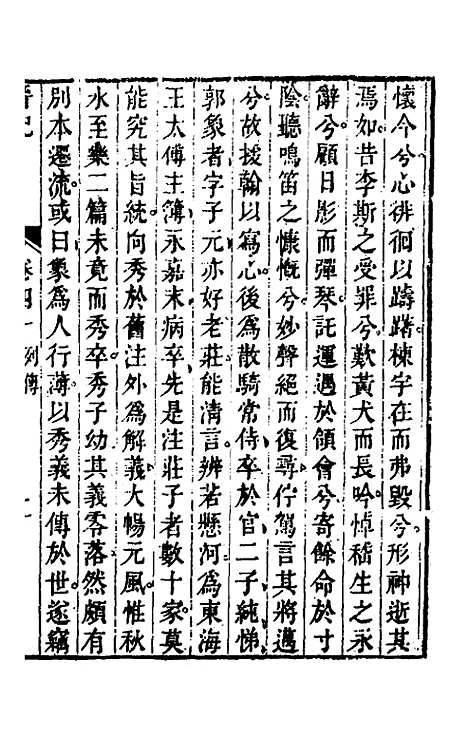 懷今兮心徘徊以躊躇。棟宇在而弗毀兮。形神逝其
焉如。昔李斯之受罪兮。歎黃犬而長吟。悼嵇生之永
辭兮。顧日影而彈琴。託運遇於領會兮。寄餘命於寸
陰。聽鳴笛之慷慨兮。妙聲絕而復尋。佇駕言其將邁
兮。故援翰以寫心。後為散騎常侍。卒於官。二子純悌。
郭象者字子元。亦好老莊。能清言。辨若懸河。為東海
王太傅主簿。永嘉末病卒。先是注莊子者數十家。莫
能究其旨統。向秀於舊注外為解義。大暢元風。惟秋
水至樂二篇未竟而秀卒。秀子幼。其義零落。然頗有
別本遷流。或曰象為人行薄。以秀義未傳於世。遂竊
晉記
卷四十 列傳